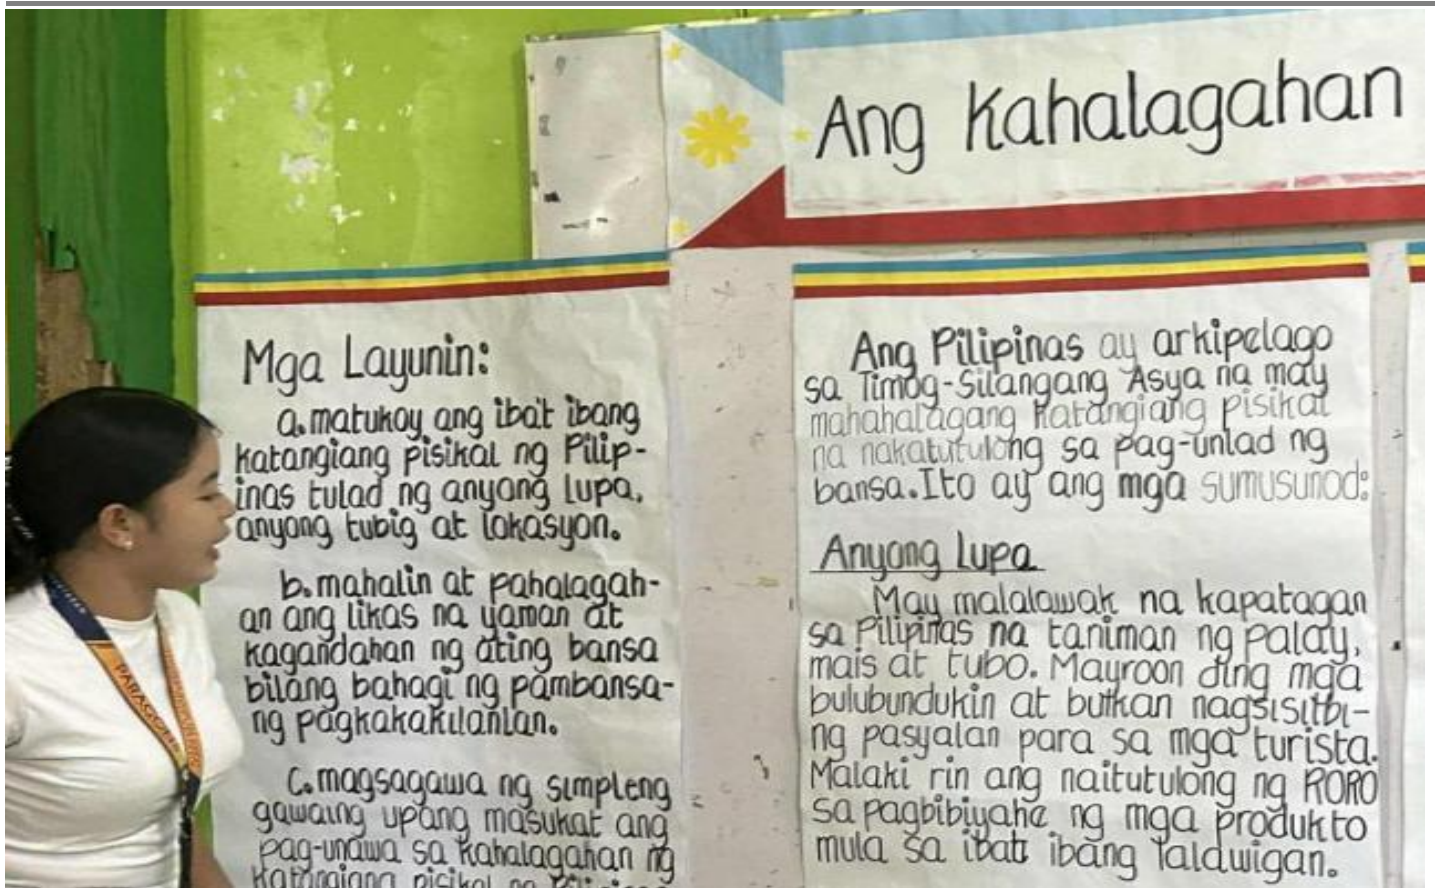 Ang Kahalagahan
Mga Layunin:
a. matukoy ang iba't ibang
katangiang pisikal ng Pilip-
inas tulad ng anyong lupa,
anyong tubig at lokasyon.
b. mahalin at pahalagah-
an ang likas na yaman at
kagandahan ng ating bansa
bilang bahagi ng pambansa-
ng pagkakakilanlan.
c. magsagawa ng simpleng
gawaing upang masukat ang
pag-unawa sa kahalagahan ng
katangiang pisikal ng Pilipinas
Ang Pilipinas ay arkipelago
sa Timog-Silangang Asya na may
mahahalagang katangiang pisikal
na nakatutulong sa pag-unlad ng
bansa. Ito ay ang mga sumusunod:
Anyong Lupa
May malalawak na kapatagan
sa Pilipinas na taniman ng palay,
mais at tubo. Mayroon ding mga
bulubundukin at bulkan nagsisilbi-
ng pasyalan para sa mga turista.
Malaki rin ang naitutulong ng RORO
sa pagbibiyahe ng mga produkto
mula sa ibat ibang lalawigan.
PARAGON